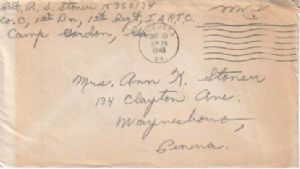 Pvt. A. S. Stoner 15360134
Co. C, 1st Bn, 1st Regt, I.A.R.T.C.
Camp Gordon, Ga.
SEP 10
5 PM
1943
GA.
Mrs. Ann K. Stoner
134 Clayton Ave.
Waynesboro,
Penna.